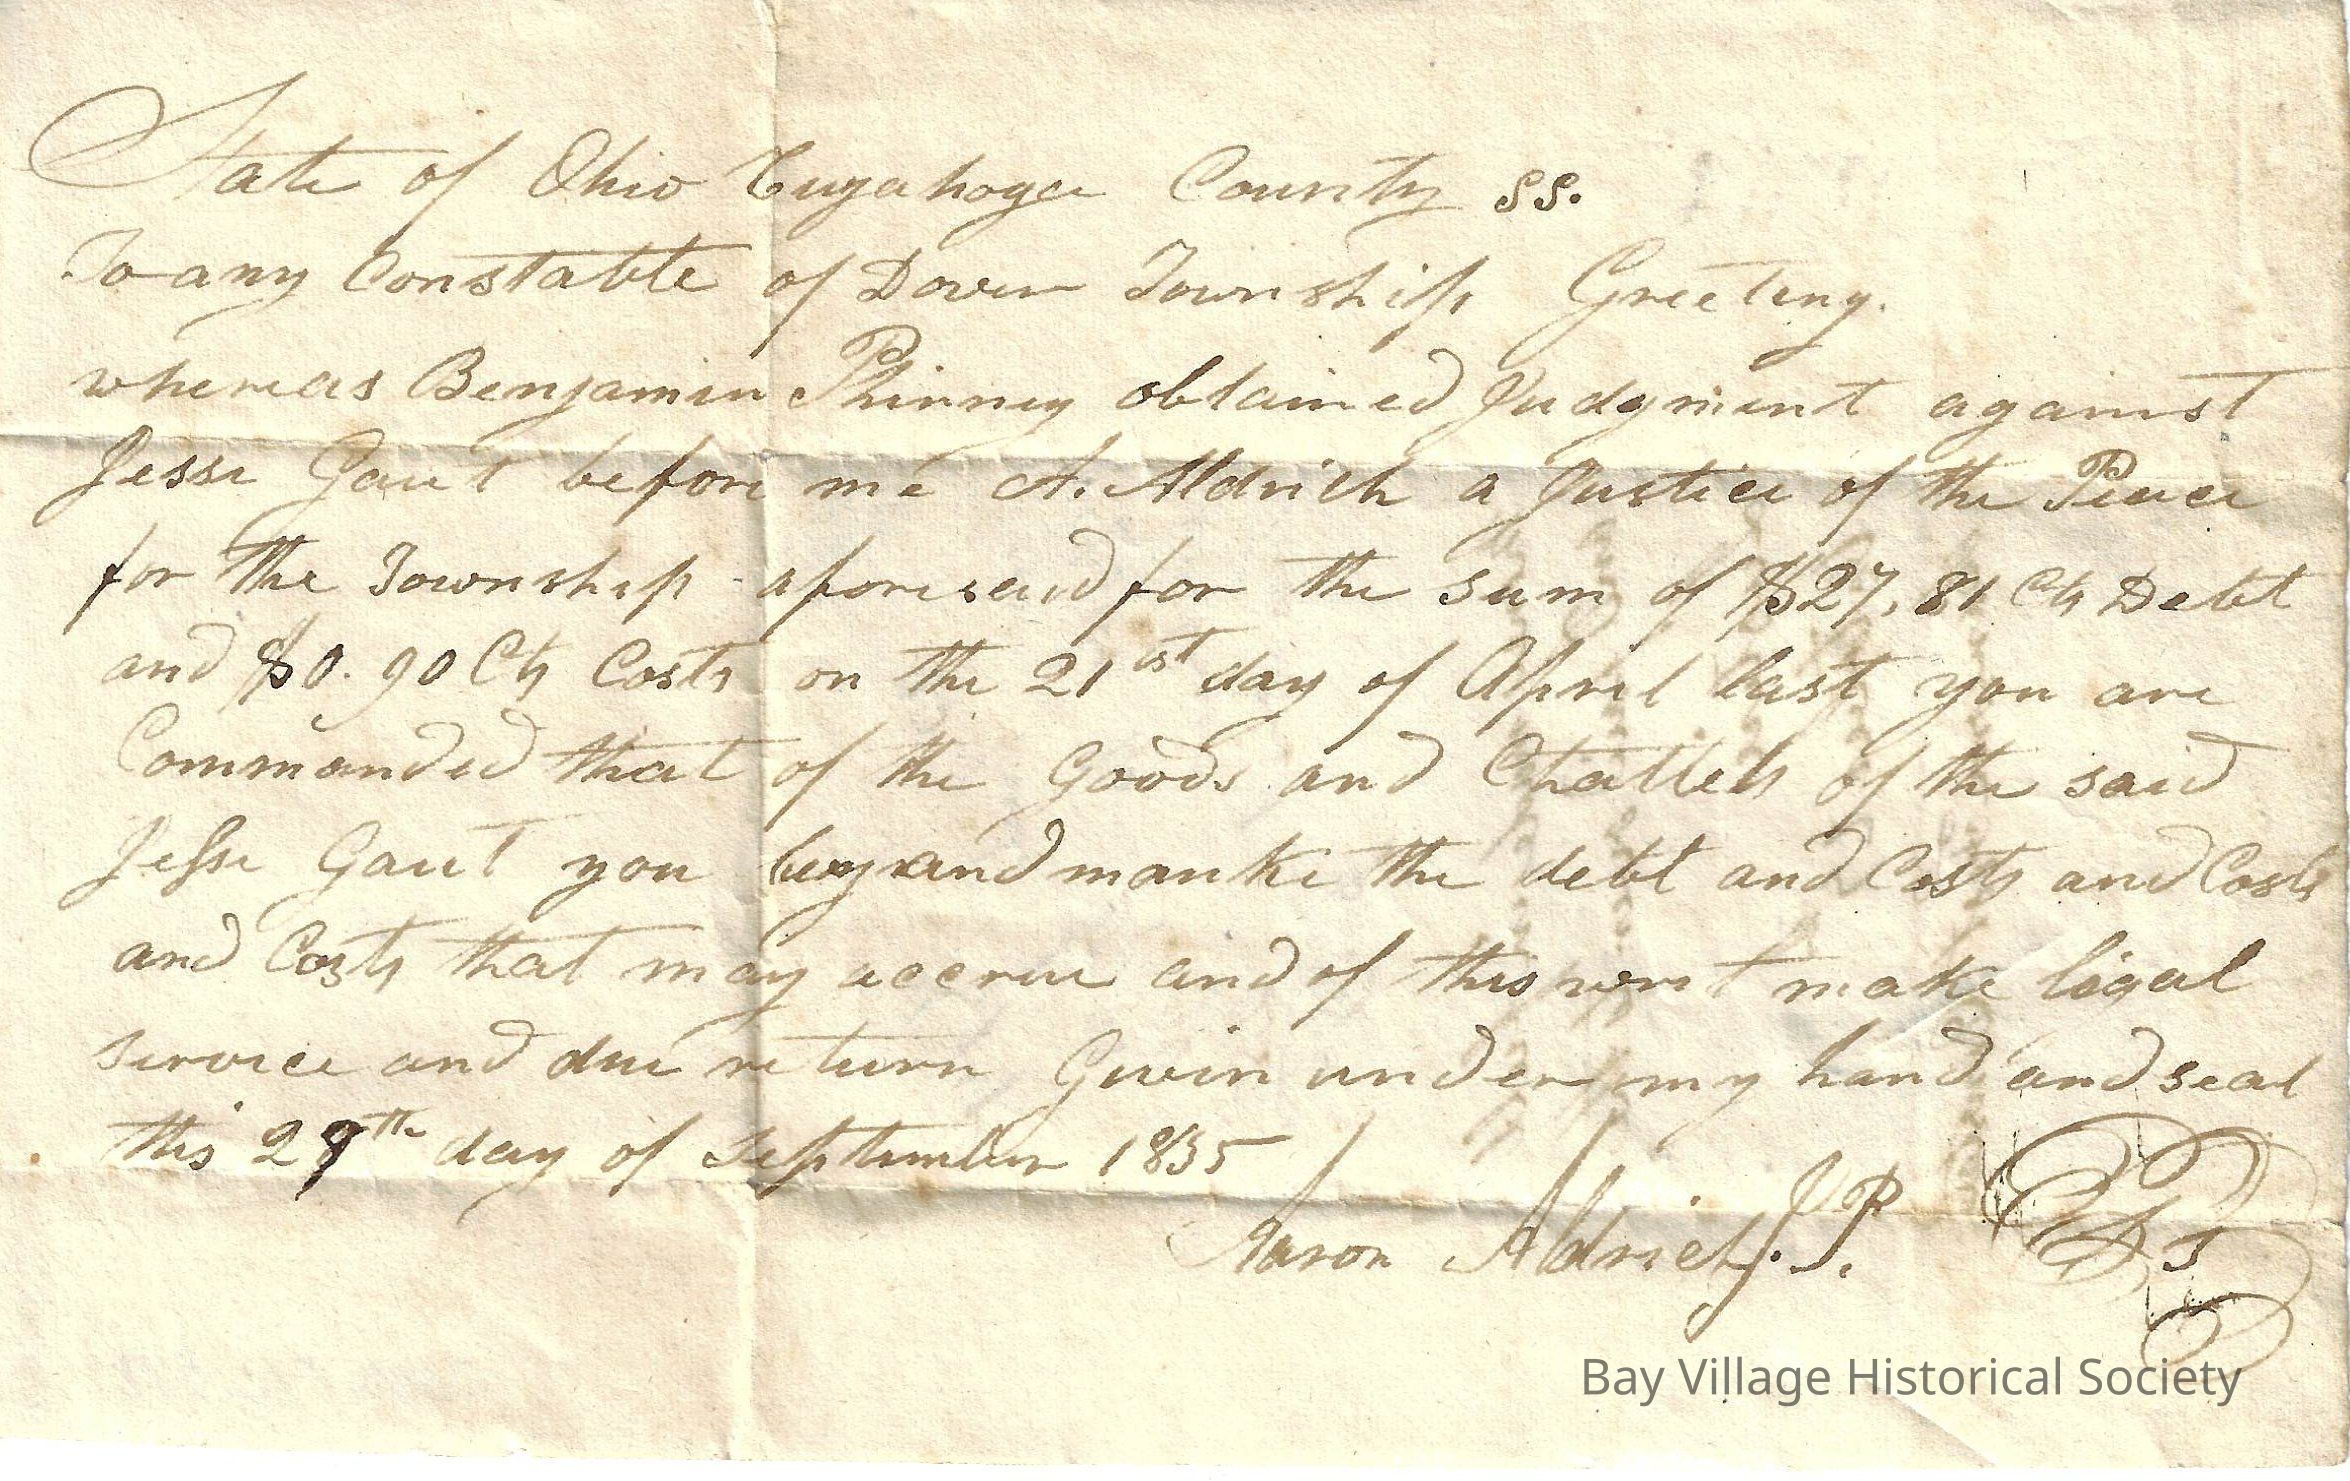 State of Ohio Cuyahoga County ss.
To any Constable of Dover Township Greeting.
whereas Benjamin Phinney obtained Judgment against
Jesse Gaut before me A. Aldrich a Justice of the Peace
for the Township aforesaid for the sum of $27,81 Cts Debt
and $0.90 Cts Costs on the 21st day of April last you are
Commanded that of the Goods and Chattels of the said
Jesse Gaut you levy and make the debt and Costs and Costs
and Costs that may accrue and of this writ make legal
service and due return Given under my hand and seal
this day of September 1835
Aaron Aldrich J.P.
Bay Village Historical Society